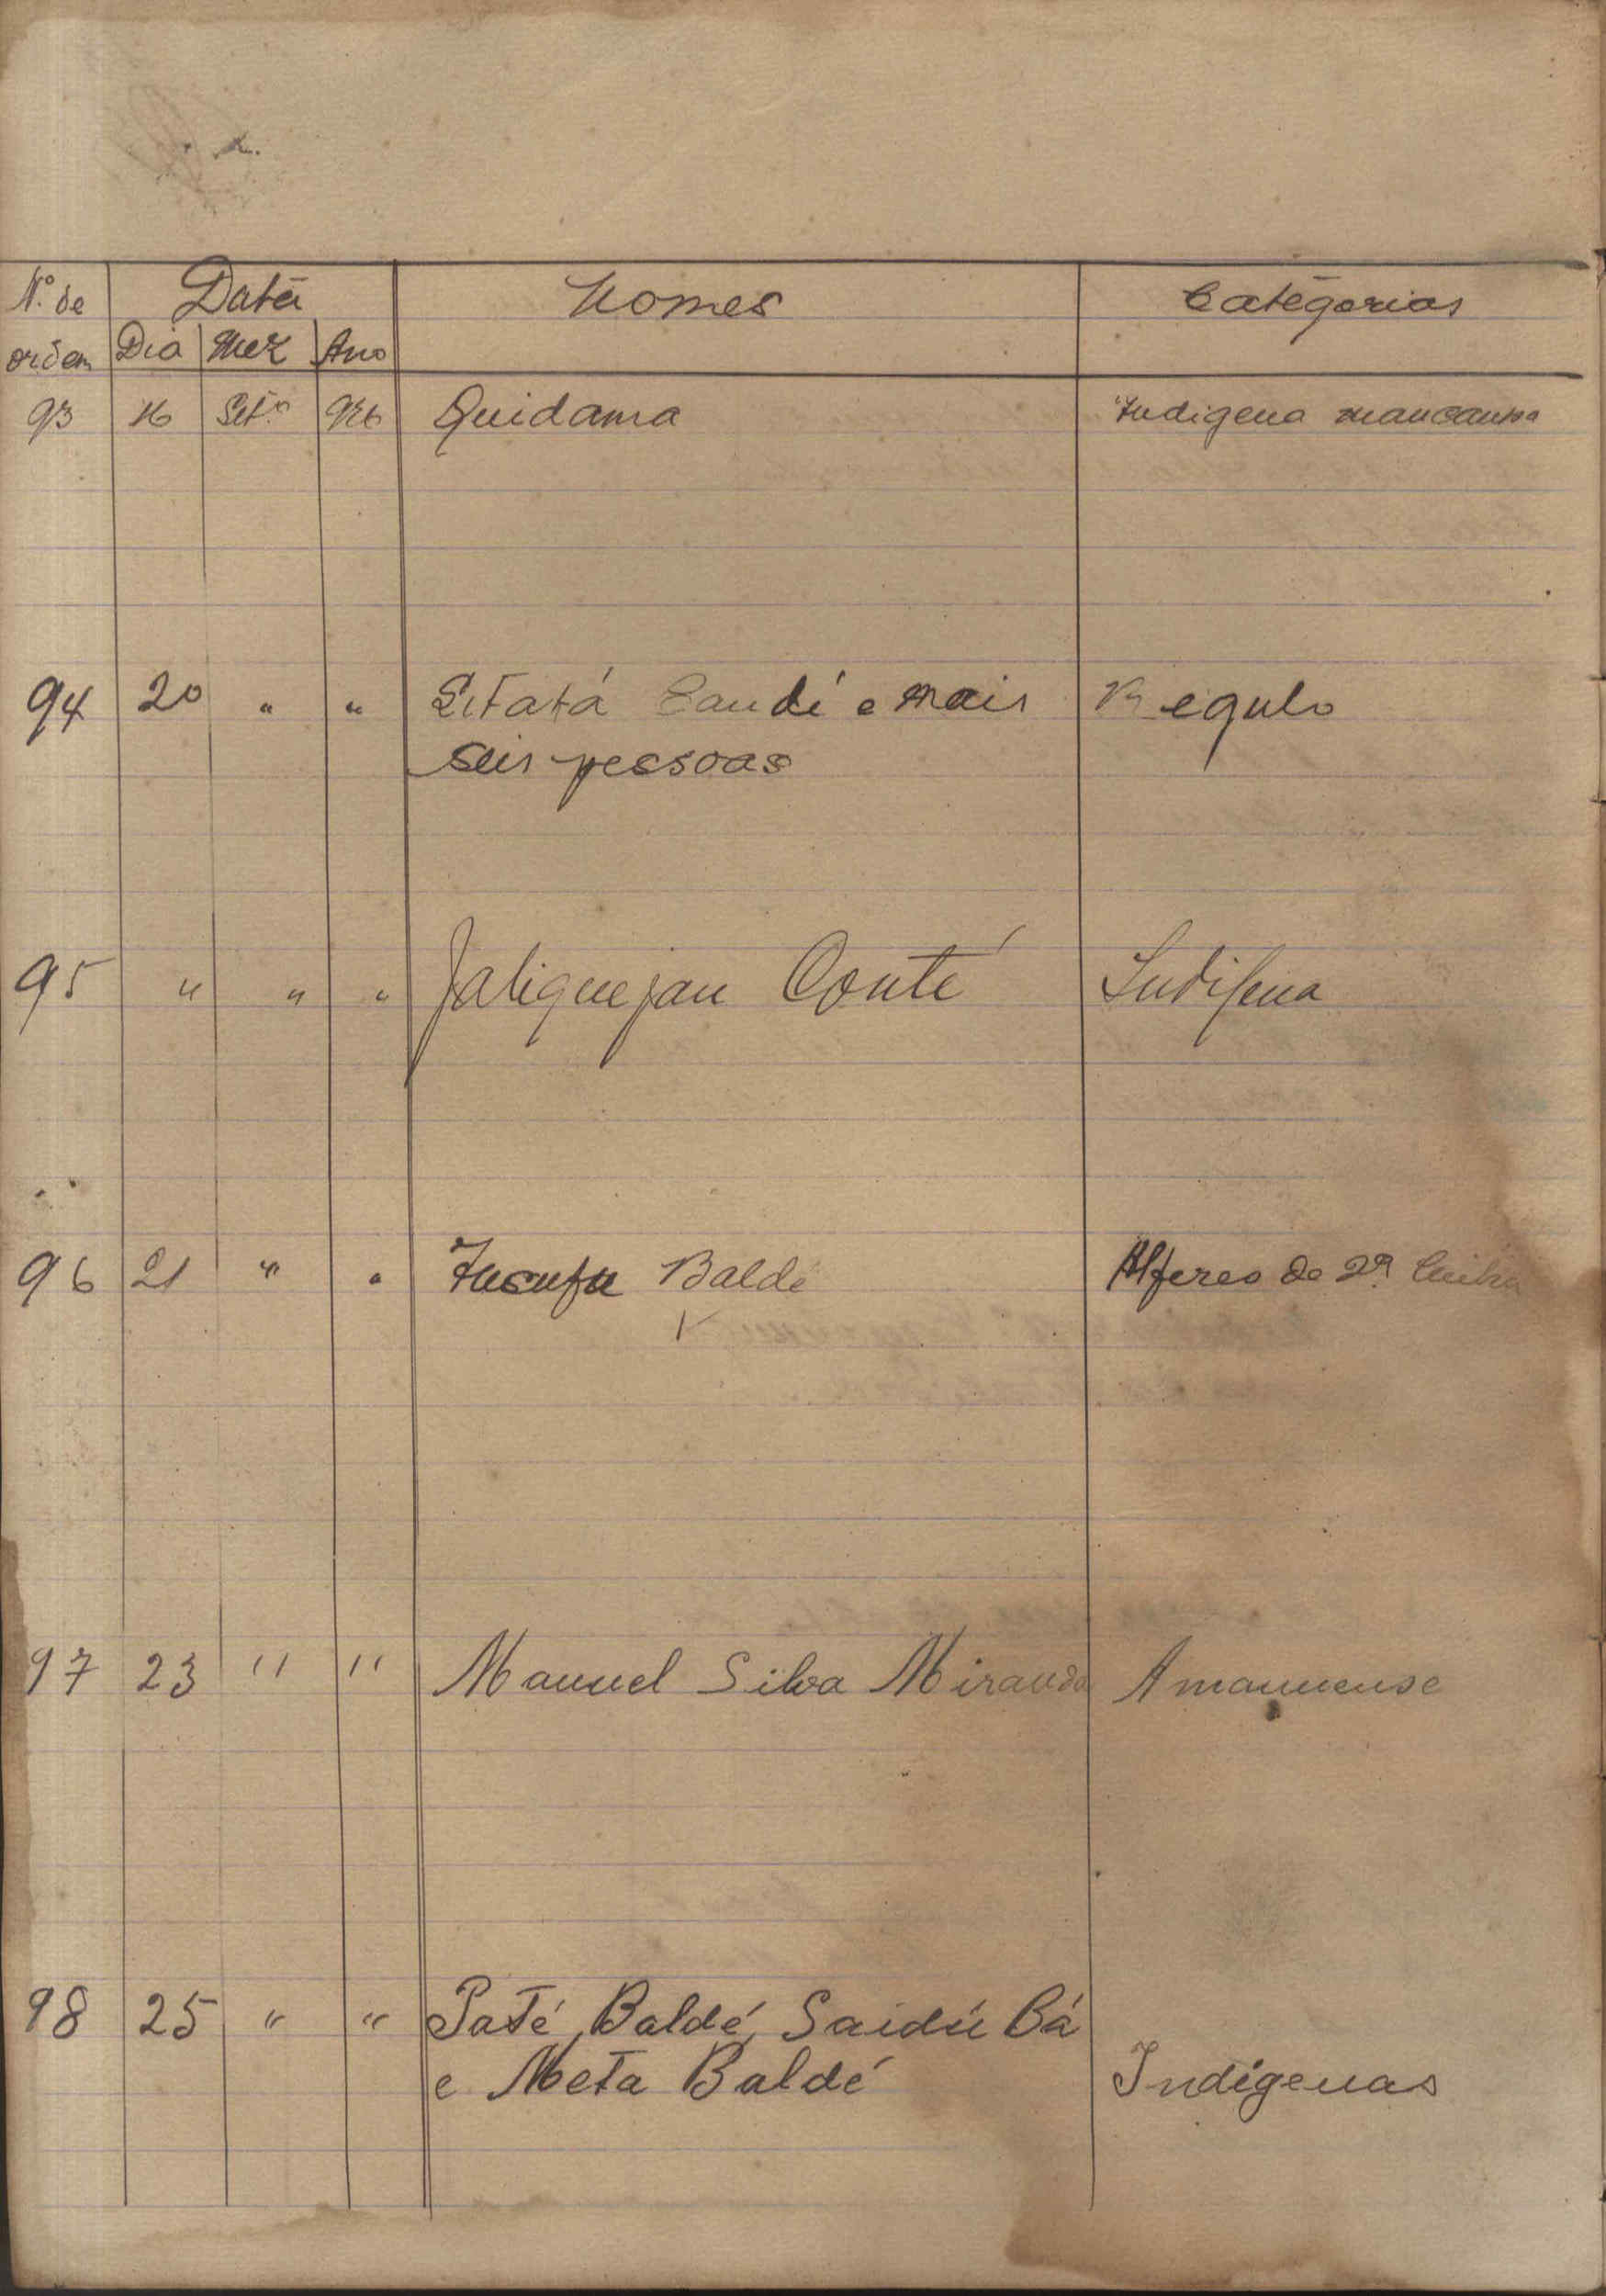 Nº de Data Nomes Categorias
ordem Dia Mez Ano
93 16 Setº 926 Quidama Indigena mancanha
94 20 " " Candé e mais Regulo
seis pessoas
95 " " " Conté Indigena
96 21 " " Iusufu Baldé Alferes de 2ª linha
97 23 " " Manuel Silva Miranda Amanuense
98 25 " " Paté Baldé, Saidú Bá
e Meta Baldé Indigenas